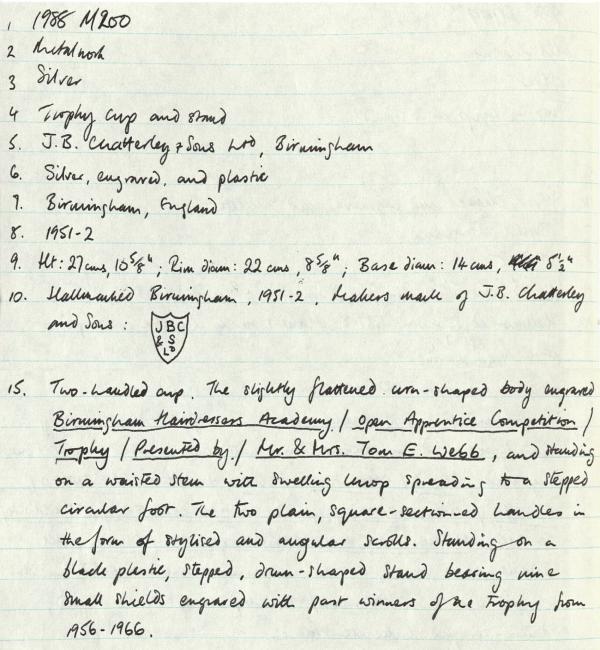 1 1988 M200
2 Metalwork
3 Silver
4 Trophy cup and stand
5. J.B. Chatterley & Sons Ltd, Birmingham
6. Silver, engraved, and plastic
7. Birmingham, England
8. 1951-2
9. Ht: 27cms, 10 5/8"; Rim diam: 22 cms, 8 5/8"; Base diam: 14 cms, 5 1/2"
10. Hallmarked Birmingham, 1951-2, Makers mark of J.B. Chatterley
and Sons:
JBC
& S
LD
15. Two-handled cup. The slightly flattened urn-shaped body engraved
Birmingham Hairdressers Academy / Open Apprentice Competition /
Trophy / Presented by / Mr. & Mrs. Tom E. Webb, and standing
on a waisted stem with swelling knop spreading to a stepped
circular foot. The two plain, square-sectioned handles in
the form of stylised and angular scrolls. Standing on a
black plastic, stepped, drum-shaped stand bearing nine
small shields engraved with past winners of the Trophy from
1956-1966.